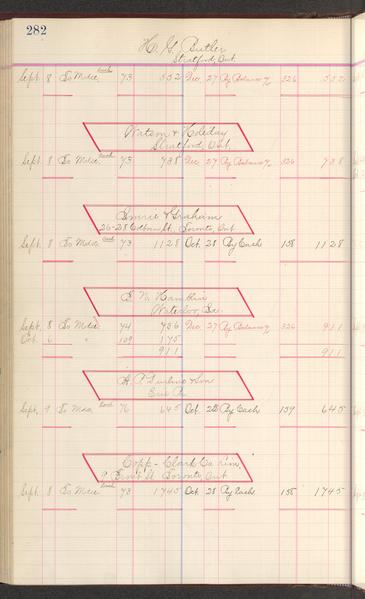 282
H. G. Butler
Stratford, Ont.
Sept. 8 To Mdse. 73 552 Dec. 27 By Balance 326 552
Watson & Holiday
Stratford, Ont.
Sept. 8 To Mdse. 73 738 Dec. 27 By Balance 326 738
Imrie & Graham
26-28 Colborne St. Toronto, Ont
Sept. 8 To Mdse. 73 1128 Oct. 28 By Cash 158 1128
Waterloo,
Sept. 8 To Mdse. 74 736 Dec. 27 By Balance 326 911
Oct. 6 " 109 175
911 911
& Son
Erie Pa.
Sept. 9 To Mdse. 76 645 Oct. 28 By Cash 159 645
Copp-Clark Co. Lim.
9 Front St. Toronto, Ont
Sept. 8 To Mdse. 73 1745 Oct. 28 By Cash 158 1745